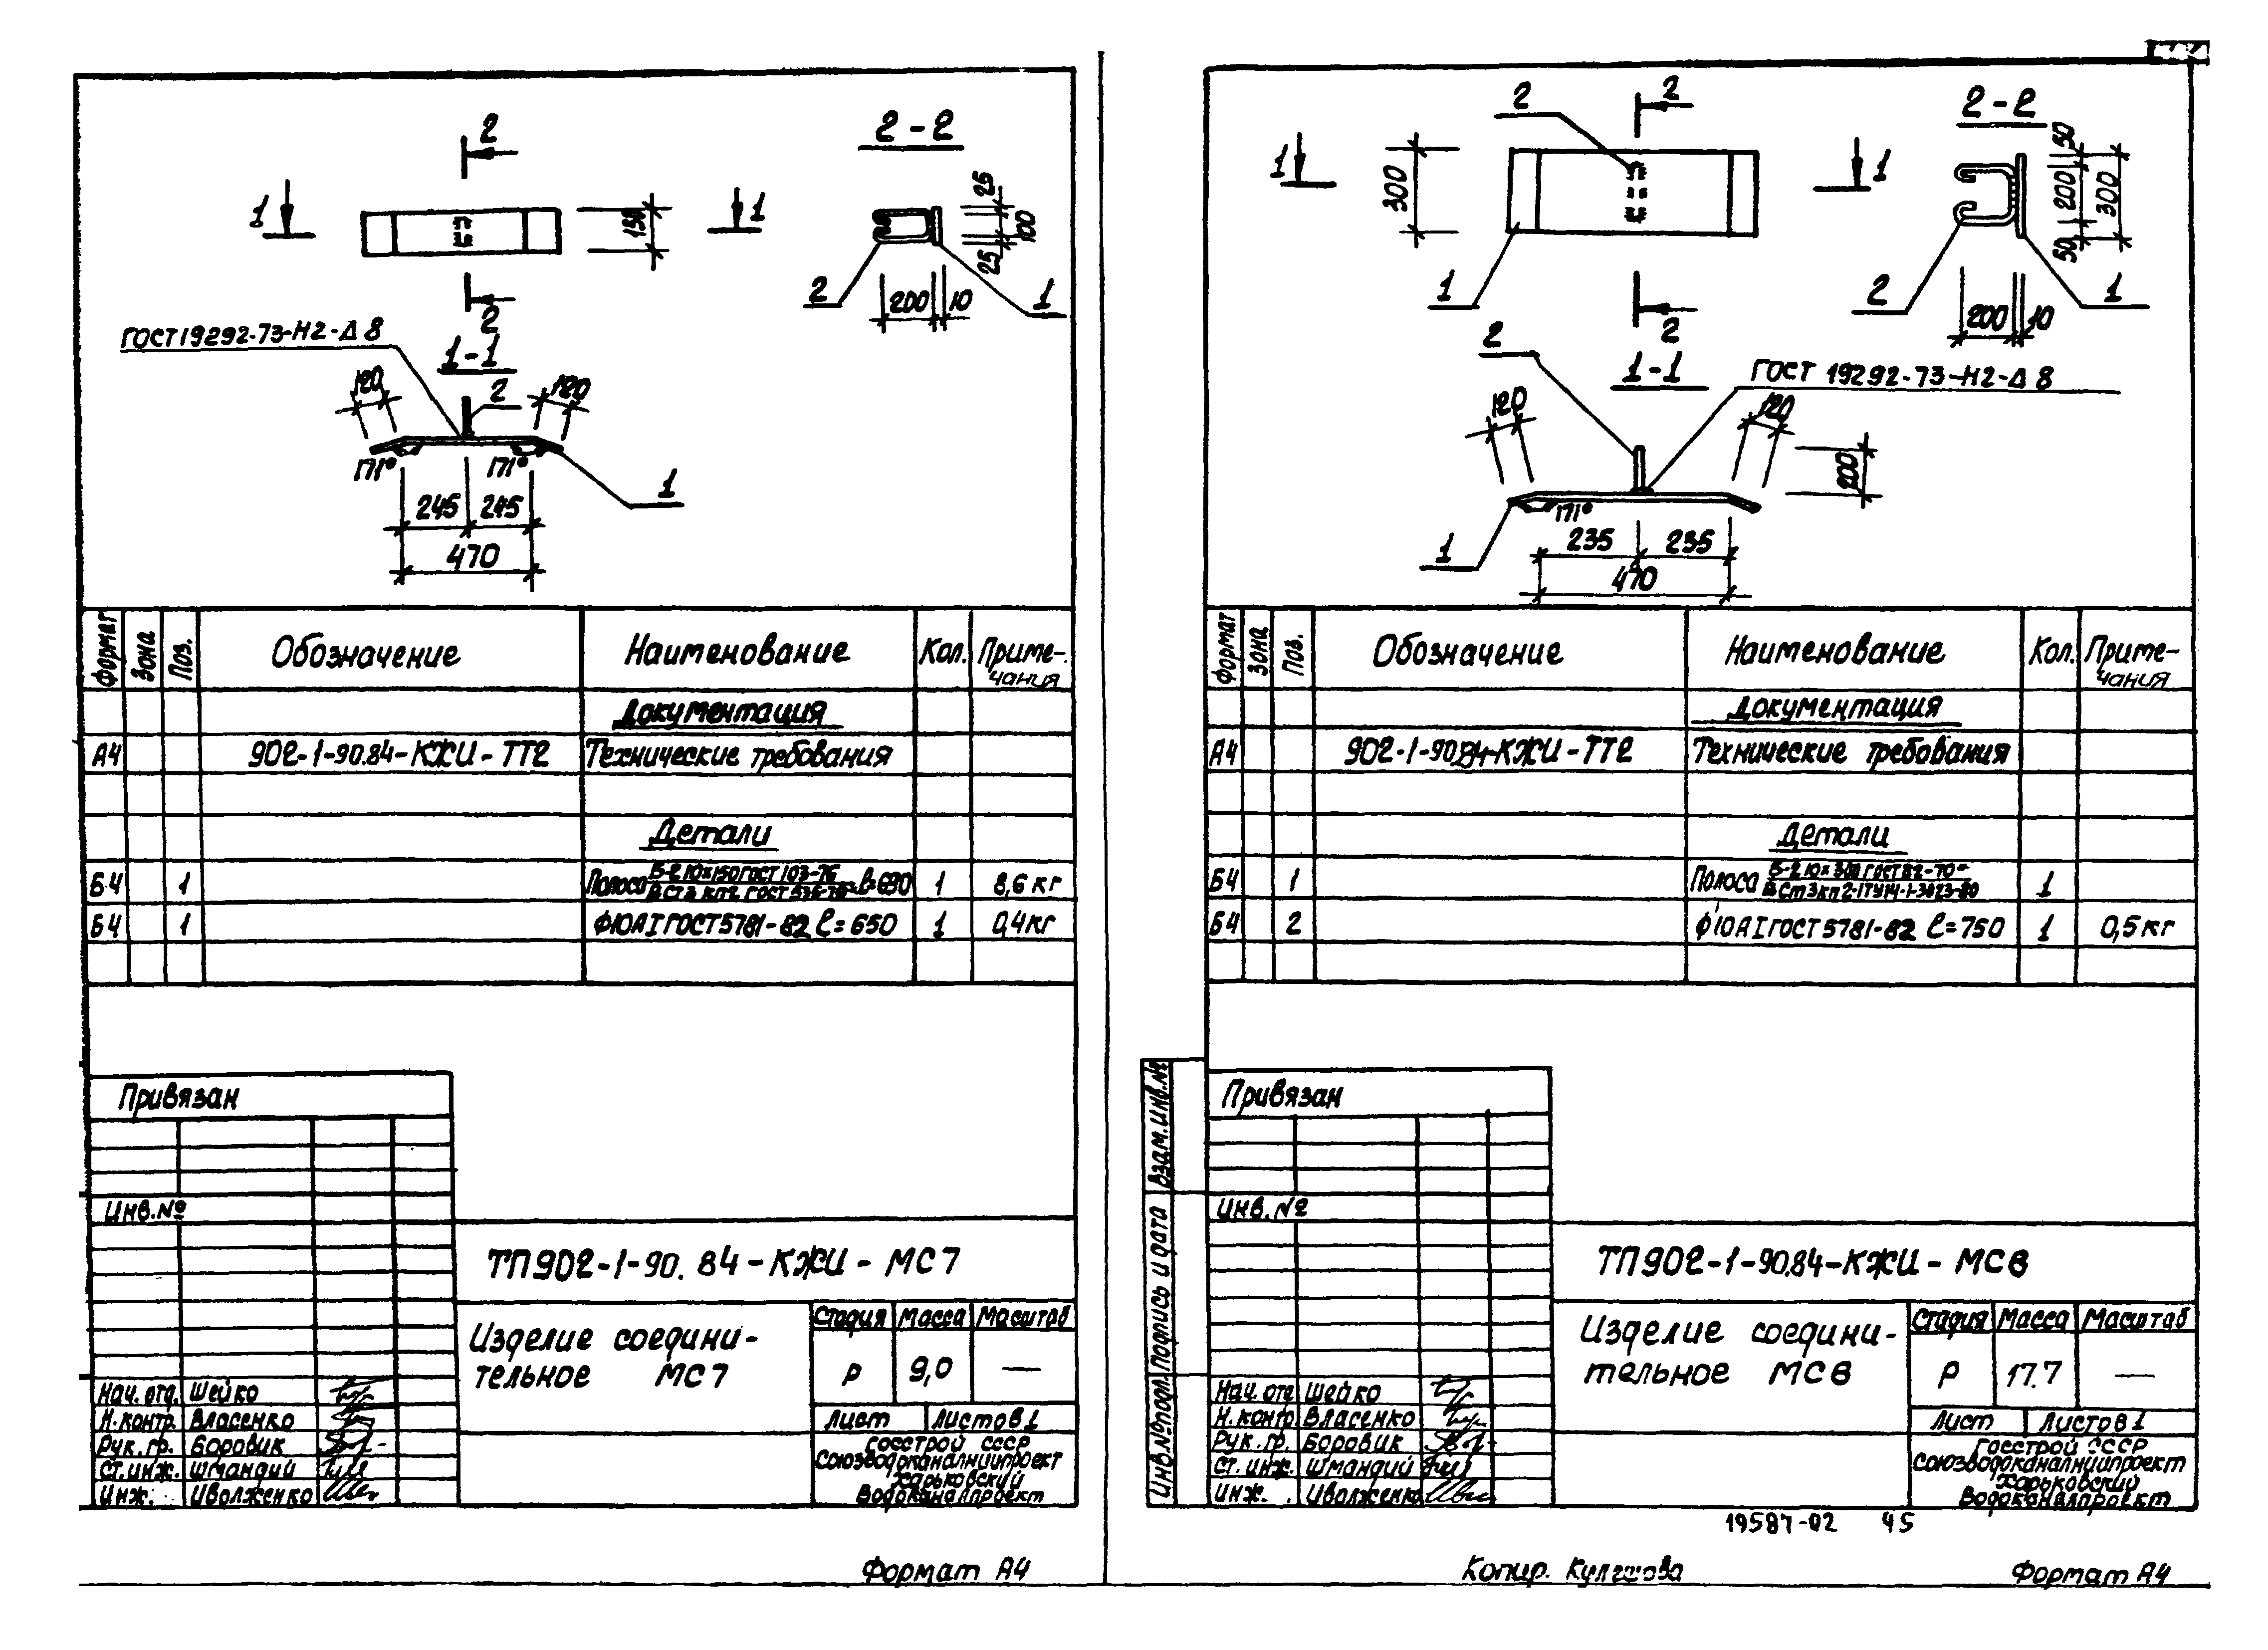 2
2-2
1
1
150
25
100
25
2
200
10
1
2
ГОСТ19292-73-Н2-Δ8
1-1
120
2
120
171°
171°
1
245
245
470
Формат
Зона
Поз.
Обозначение
Наименование
Кол.
Приме-
чания
Документация
А4 902-1-90.84-КЖИ-ТТ2 Технические требования
Детали
Б4 1 Полоса Б-2 10×150 ГОСТ 103-76 ℓ=690 1 8,6 кг
Б4 1 Ф10АIГОСТ5781-82 ℓ=650 1 0,4кг
Привязан
Инв.№
ТП902-1-90.84-КЖИ-МС7
Изделие соедини-
тельное МС7
Стадия Масса Масштаб
Р 9,0 —
Лист Листов 1
Госстрой СССР
Союзводоканалниипроект
Харьковский
Водоканалпроект
Нач. отд. Шейко
Н.контр. Власенко
Рук.гр. Боровик
Ст.инж. Шмандий
Инж. Иволженко
Формат А4
2
2
2-2
1
1
300
50
200
300
50
1
2
2
200
10
1
2
1-1
ГОСТ 19292-73-Н2-Δ8
120
120
200
171°
1
235
235
470
Формат
Зона
Поз.
Обозначение
Наименование
Кол.
Приме-
чания
Документация
А4 902-1-90.84-КЖИ-ТТ2 Технические требования
Детали
Б4 1 Полоса Б-2 10×300 ГОСТ 82-70* 1
ВСт3кп2-1ТУ14-1-3023-80
Б4 2 Ф10АIГОСТ5781-82 ℓ=750 1 0,5кг
Взам.Инв.№
Подпись и дата
Инв.№подл.
Привязан
Инв.№
ТП902-1-90.84-КЖИ-МС8
Изделие соедини-
тельное МС8
Стадия Масса Масштаб
Р 17.7 —
Лист Листов 1
Госстрой СССР
Союзводоканалниипроект
Харьковский
Водоканалпроект
Нач. отд. Шейко
Н.контр. Власенко
Рук.гр. Боровик
Ст.инж. Шмандий
Инж. Иволженко
19587-02 45
Копир. Кулешова
Формат А4